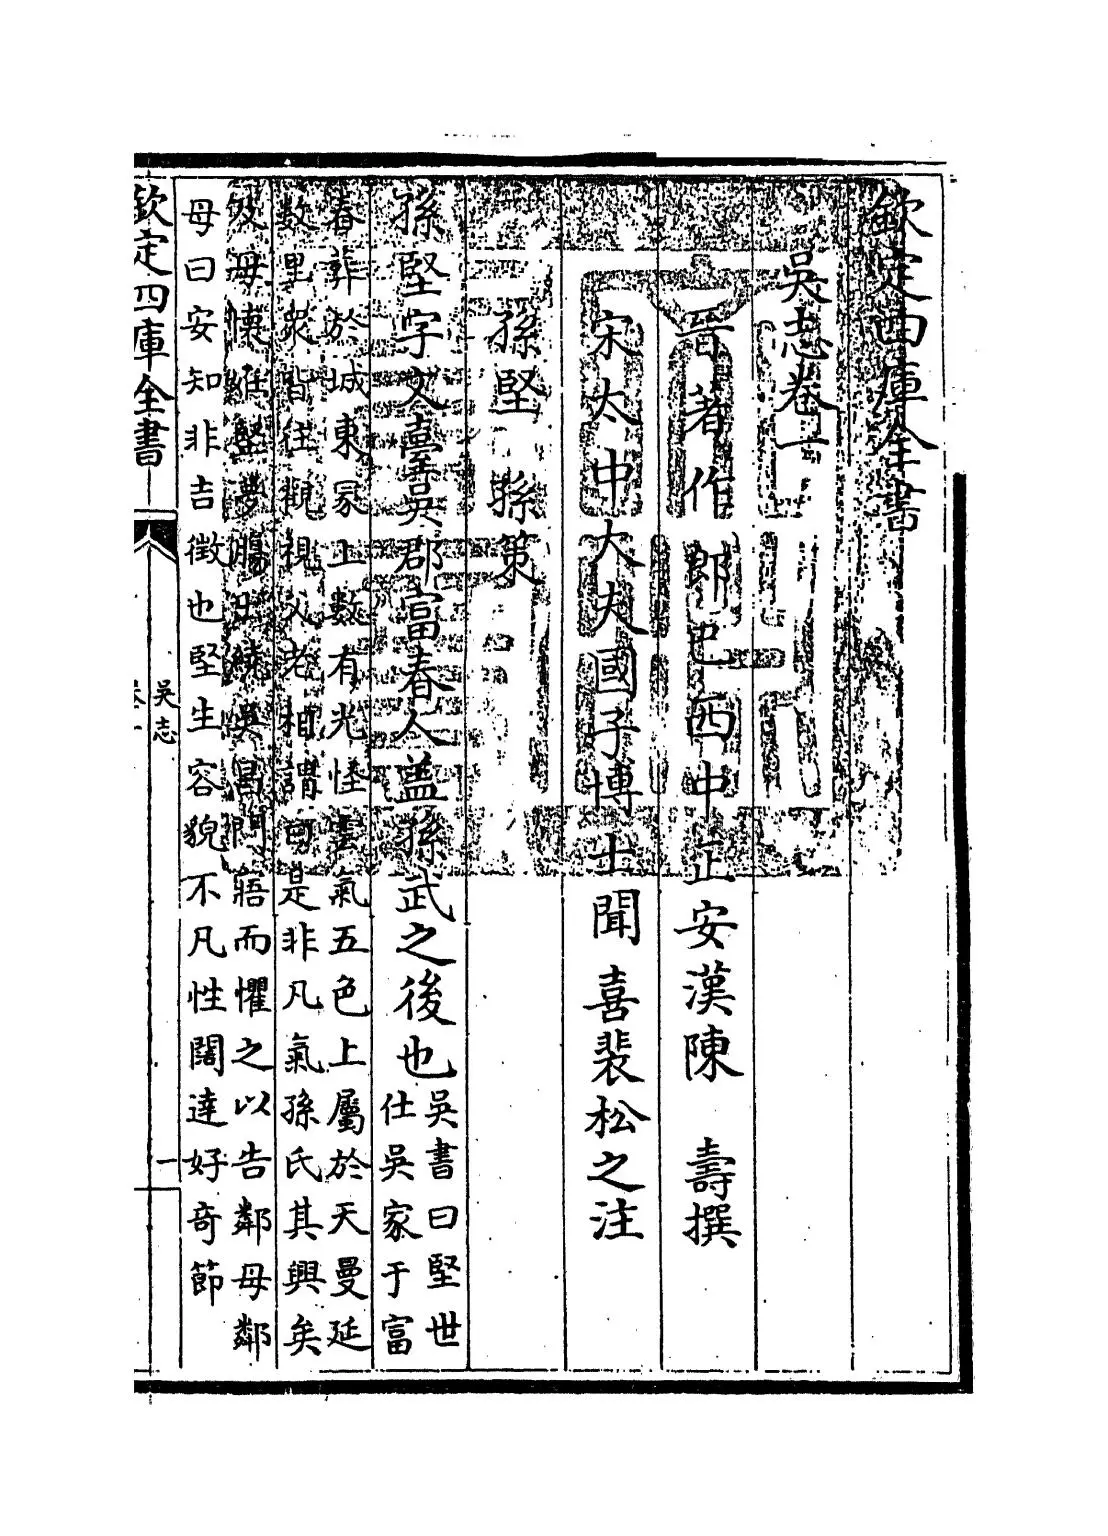 欽定四庫全書
吳志卷一
晉著作郎巴西中正安漢陳 壽撰
宋太中大夫國子博士聞 喜裴松之注
孫堅 孫策
孫堅字文臺吳郡富春人蓋孫武之後也
吳書曰堅世
仕吳家于富
春葬於城東冢上數有光怪雲氣五色上屬於天曼延
數里衆皆往觀視父老相謂曰是非凡氣孫氏其興矣
及母懷姙堅夢腸出繞吳昌門寤而懼之以告鄰母鄰
母曰安知非吉徵也堅生容貌不凡性闊達好奇節
欽定四庫全書
吳志
卷一
一